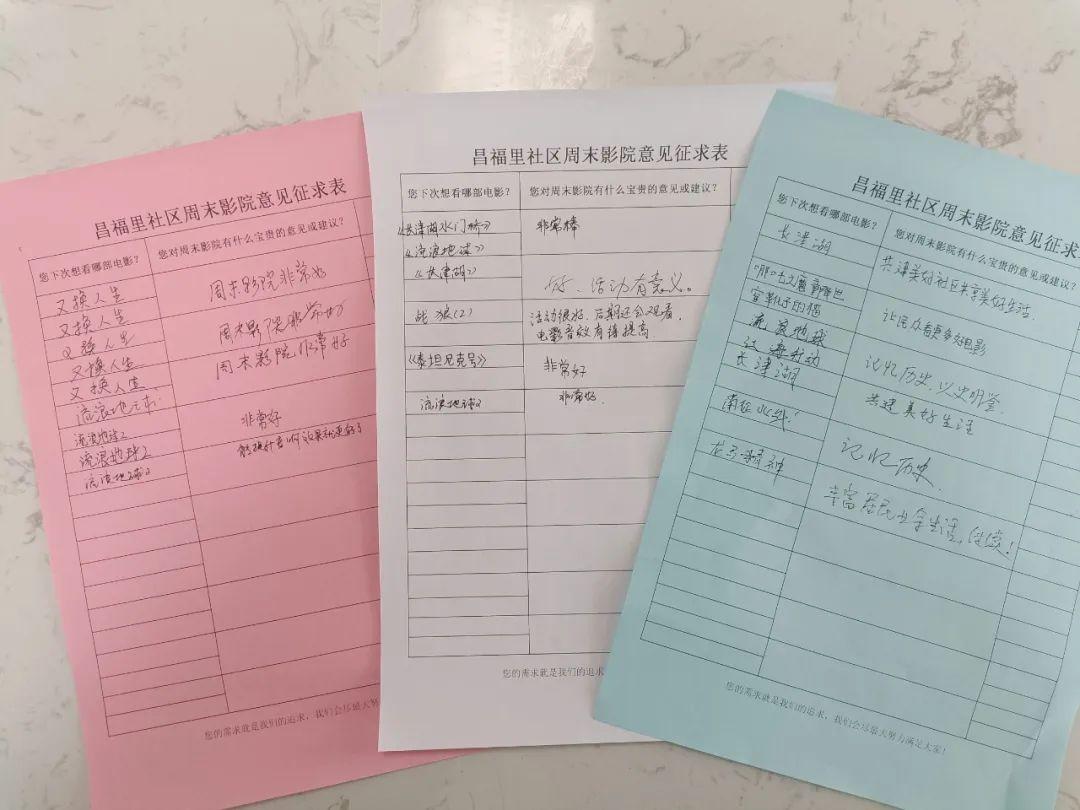 昌福里社区周末影院意见征求表
您下次想看哪部电影？
您对周末影院有什么宝贵的意见或建议？
又换人生
又换人生
又换人生
又换人生
又换人生
流浪地球
流浪地球2
流浪地球2
流浪地球2
周末影院非常好
周末影院非常好
周末影院非常好
非常好
音响效果就更好了
您的需求就是我们的追求，我们会尽最大努
昌福里社区周末影院意见征求表
您下次想看哪部电影？
您对周末影院有什么宝贵的意见或建议？
《长津湖水门桥》
《流浪地球》
《长津湖》
战狼(2)
《泰坦尼克号》
流浪地球2
非常棒
好、活动有意义。
活动很好，后期还会观看，
电影音效有待提高
非常好
非常好。
您的需求就是我们的追求
昌福里社区周末影院意见征求
您下次想看哪部电影？
您对周末影院有什么宝贵的意见或建议？
长津湖
流浪地球
红海行动
长津湖
南征北战！
龙马精神
共建美好社区共享美好生活，
让民众看更多好电影
记忆历史，以史明鉴，
共建美好生活
记忆历史。
丰富居民业余生活，继续！
您的需求就是我们的追求，我们会尽最大努力满足大家！